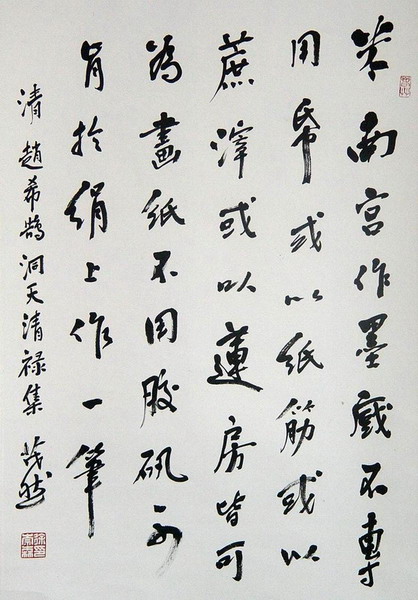 米南宫作墨戲不專
用帋或以紙筋或以
蔗滓或以蓮房皆可
為畫紙不用膠矾不
肯於絹上作一筆
清趙希鵠洞天清禄集